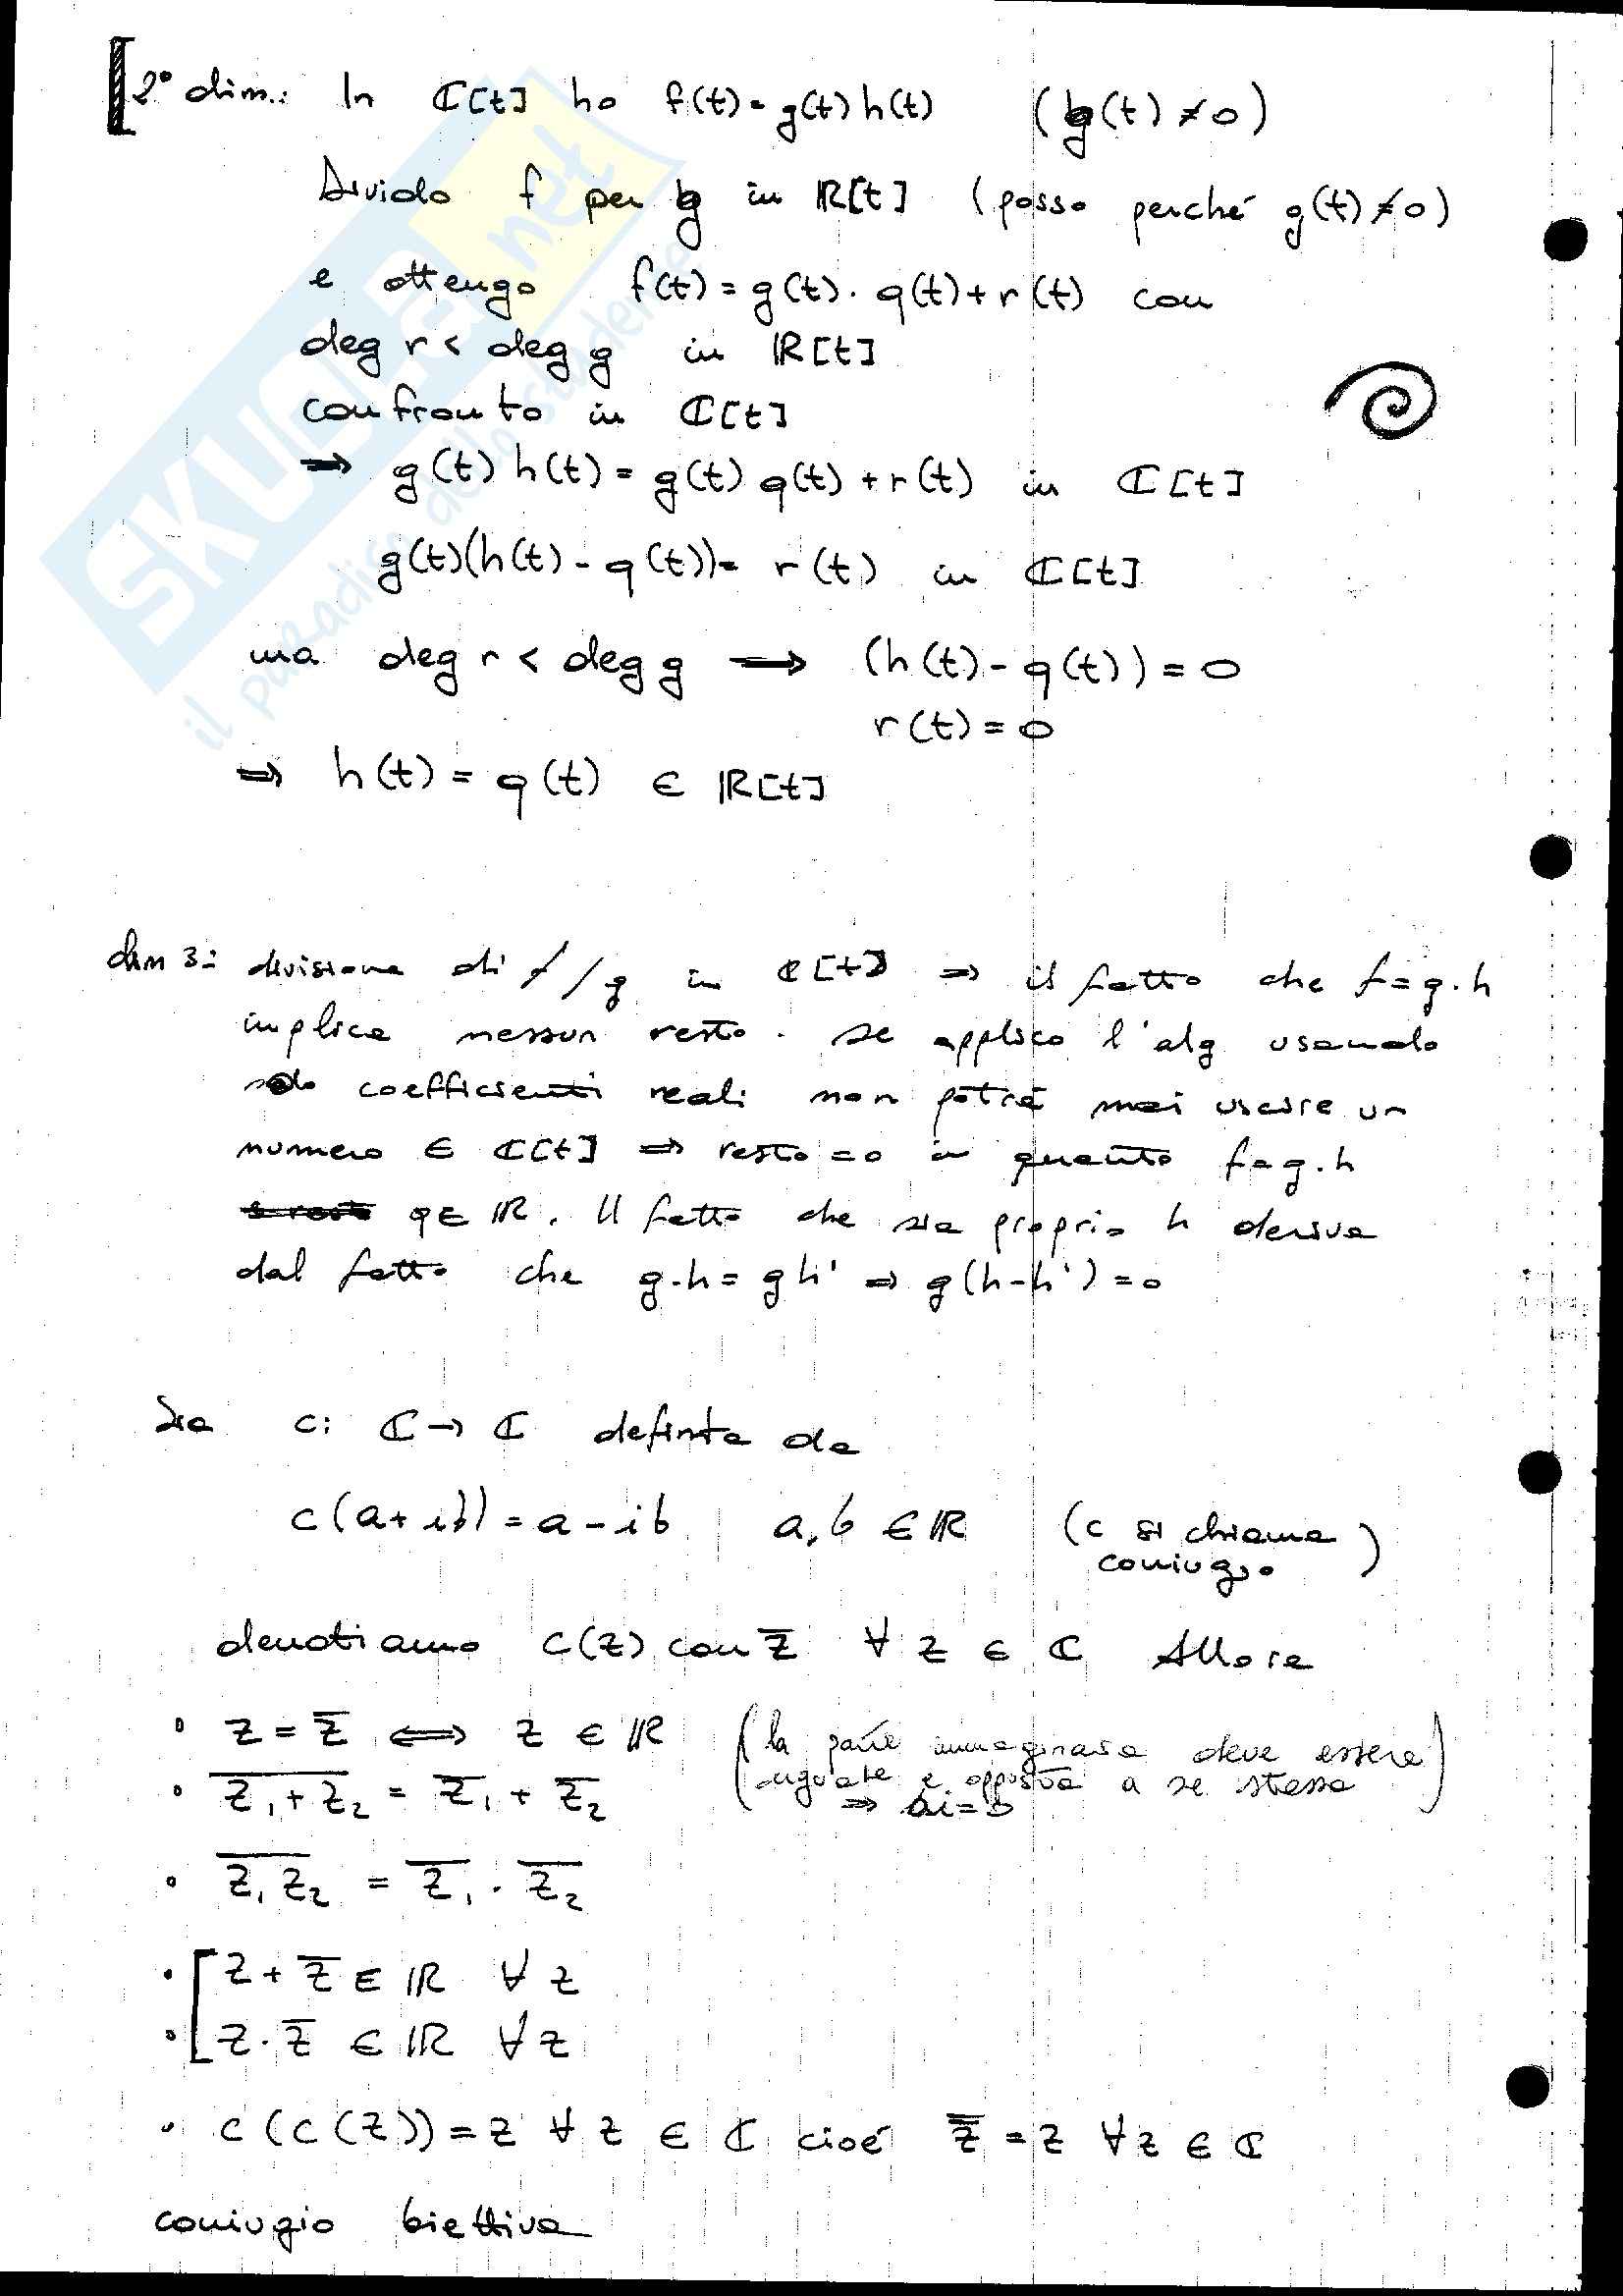 2° dim.: In ℂ[t] ho f(t) = g(t) h(t) (g(t) ≠ 0)
Divido f per g in ℝ[t] (posso perché g(t) ≠ 0)
e ottengo f(t) = g(t) · q(t) + r(t) con
deg r < deg g in ℝ[t]
confronto in ℂ[t]
⇒ g(t) h(t) = g(t) q(t) + r(t) in ℂ[t]
g(t)(h(t) - q(t)) = r(t) in ℂ[t]
ma deg r < deg g ⟶ (h(t) - q(t)) = 0
r(t) = 0
⇒ h(t) = q(t) ∈ ℝ[t]
dim 3: divisione di f/g in ℂ[t] ⇒ il fatto che f = g·h
implica nessun resto. Se applico l'alg usando
solo coefficienti reali non potrà mai uscire un
numero ∈ ℂ[t] ⇒ resto = 0 in quanto f = g·h
q ∈ ℝ. Il fatto che sia proprio h deriva
dal fatto che g·h = gh' ⇒ g(h-h') = 0
Sia c: ℂ → ℂ definita da
c(a+ib) = a-ib a,b ∈ ℝ (c si chiama
coniugio)
denotiamo c(z) con z̅ ∀ z ∈ ℂ Allora
• z = z̅ ⟺ z ∈ ℝ (la parte immaginaria deve essere
uguale e opposta a se stessa
• \overline{z₁ + z₂} = z̅₁ + z̅₂
• \overline{z₁ z₂} = z̅₁ · z̅₂
• [ z + z̅ ∈ ℝ ∀ z
• [ z · z̅ ∈ ℝ ∀ z
• c(c(z)) = z ∀ z ∈ ℂ cioé \overline{z̅} = z ∀ z ∈ ℂ
coniugio biettiva
SKUOLA.net
il paradiso dello studente